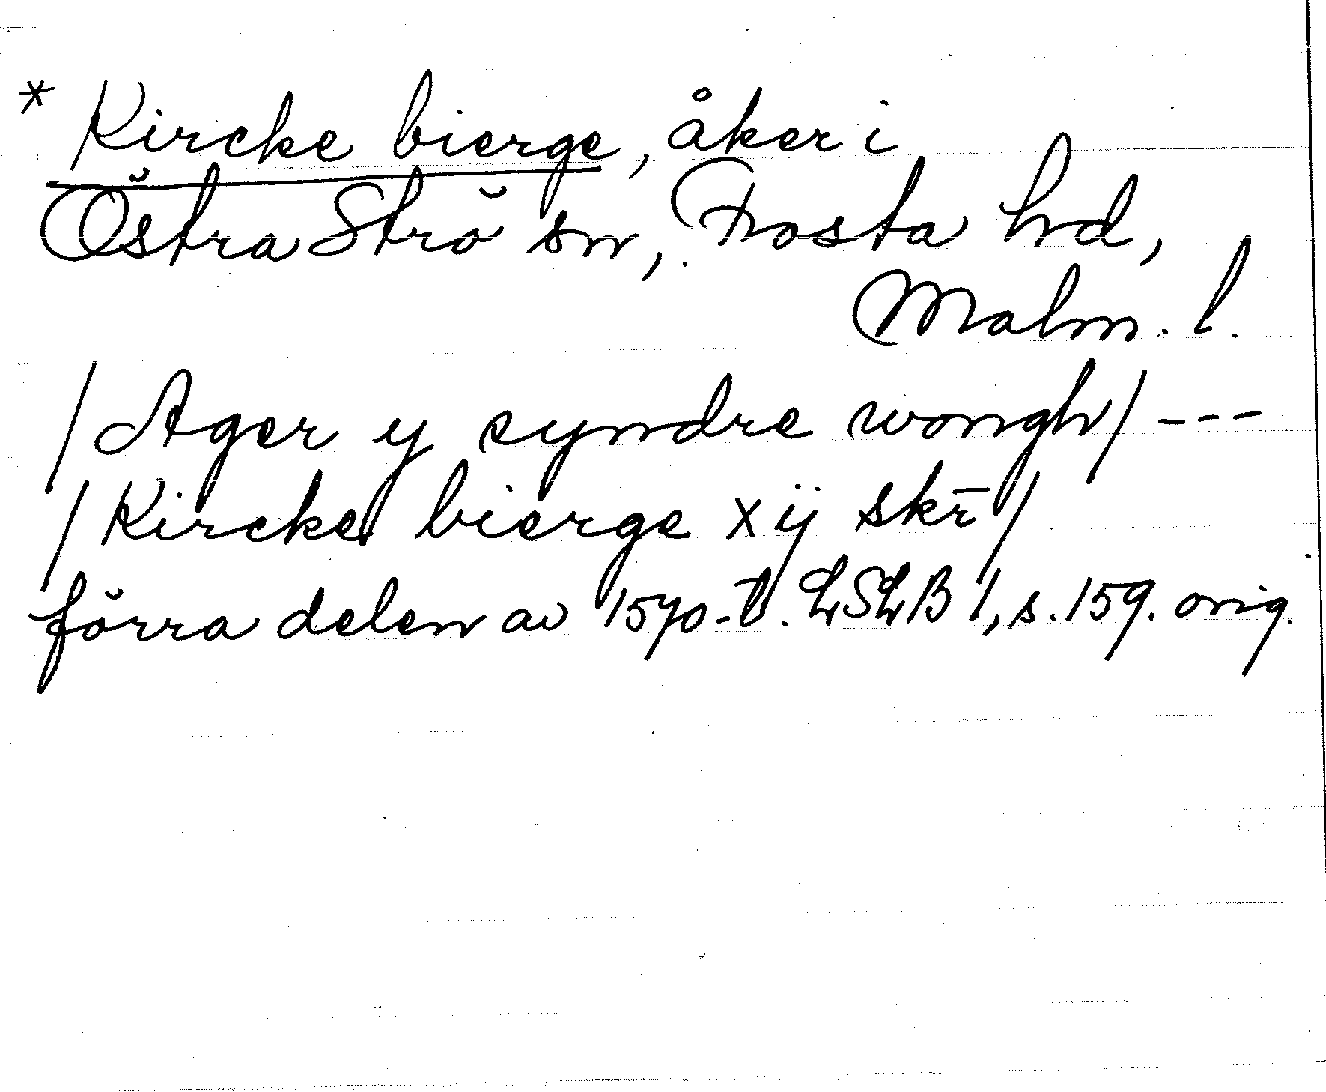 * Kircke bierge, åker i
Östra Strö sn, Frosta hd,
Malm. l.
/Ager y syndre wongh/ ---
/Kircke bierge xij skr̄/
förra delen av 1570-t. LSLB 1, s. 159. orig.